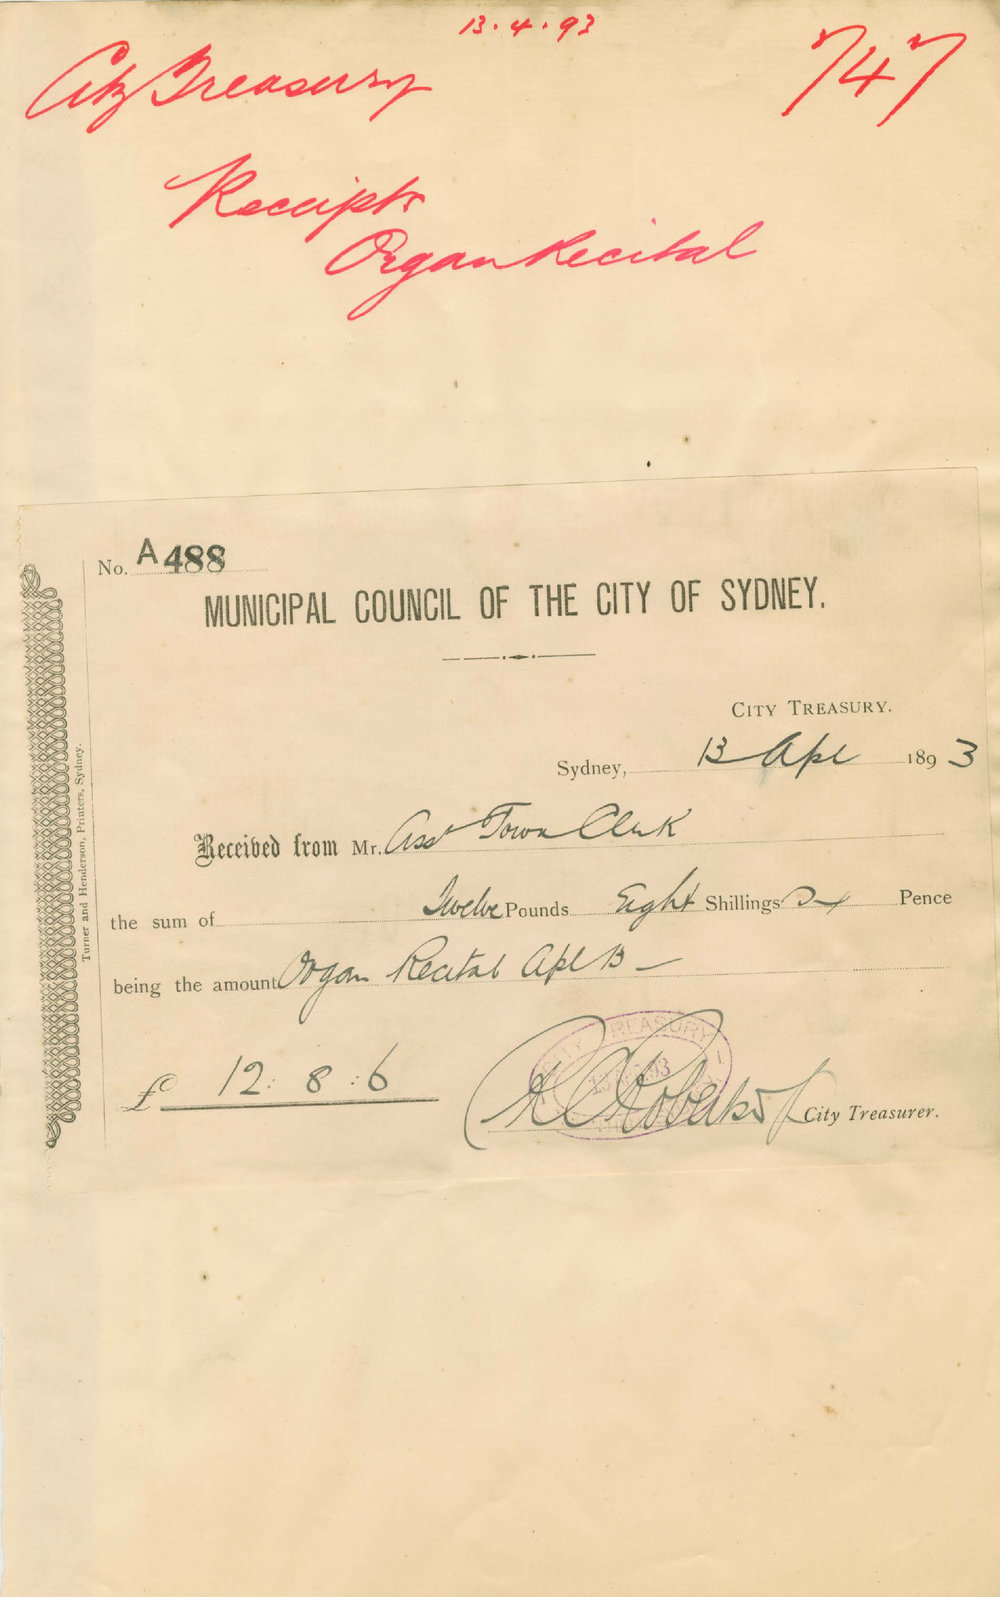 13.4.93
City Treasury
747
Receipts
Organ Recital
No. A 488
MUNICIPAL COUNCIL OF THE CITY OF SYDNEY.
CITY TREASURY.
Sydney, 13 Apl 1893
Received from Mr. Asst Town Clerk
the sum of Twelve Pounds Eight Shillings Six Pence
being the amount Organ Recital Apl 13 —
£ 12 : 8 : 6
CITY TREASURY
City Treasurer.
Turner and Henderson, Printers, Sydney.